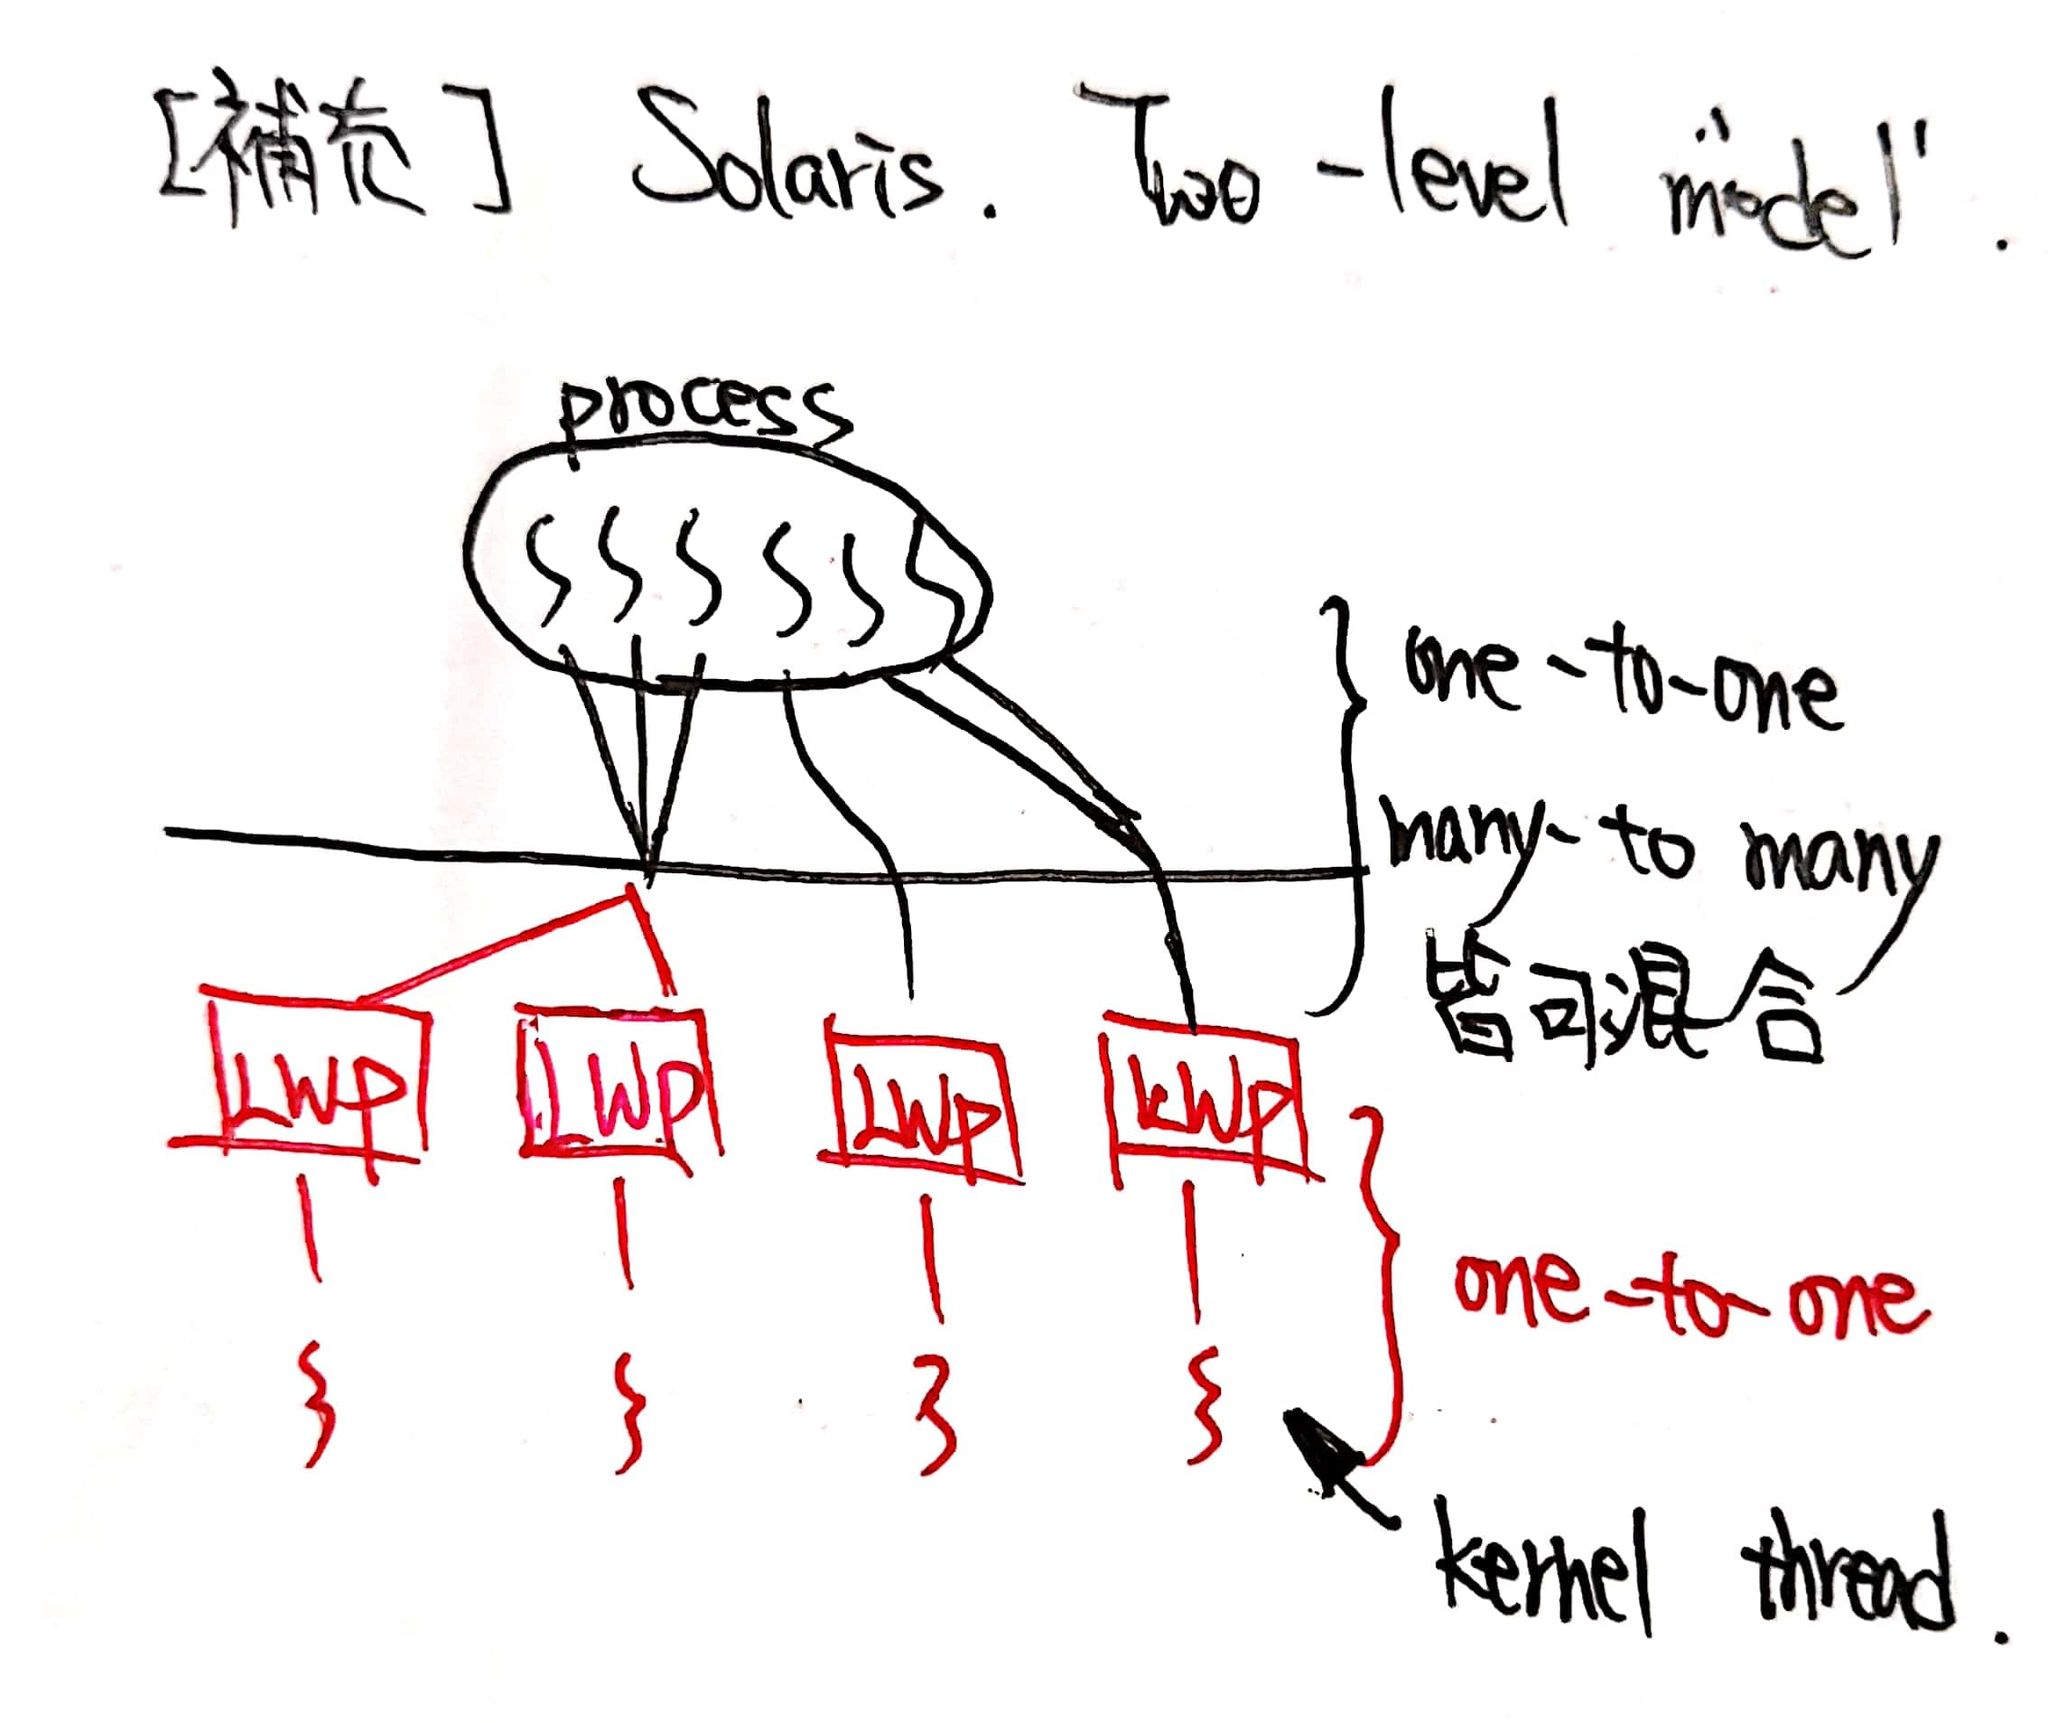 [補充] Solaris. Two-level "model".
process
one-to-one
many-to many
皆可混合
LWP LWP LWP LWP
one-to-one
kernel thread.